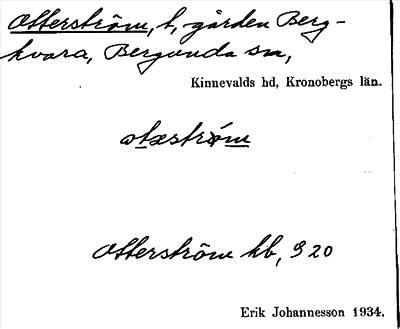 Otterström, t, gården Berg-
kvara, Bergunda sn,
Kinnevalds hd, Kronobergs län.
Otterström hb, 920
Erik Johannesson 1934.